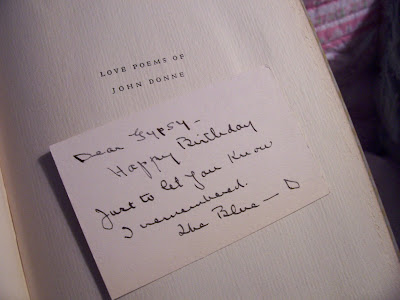 LOVE POEMS OF
JOHN DONNE
Dear Gypsy —
Happy Birthday
Just to let you know
I remembered.
The Blue — D